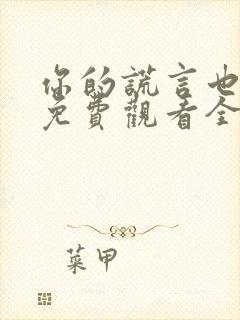 你的謊言也
免費觀看全
菜甲